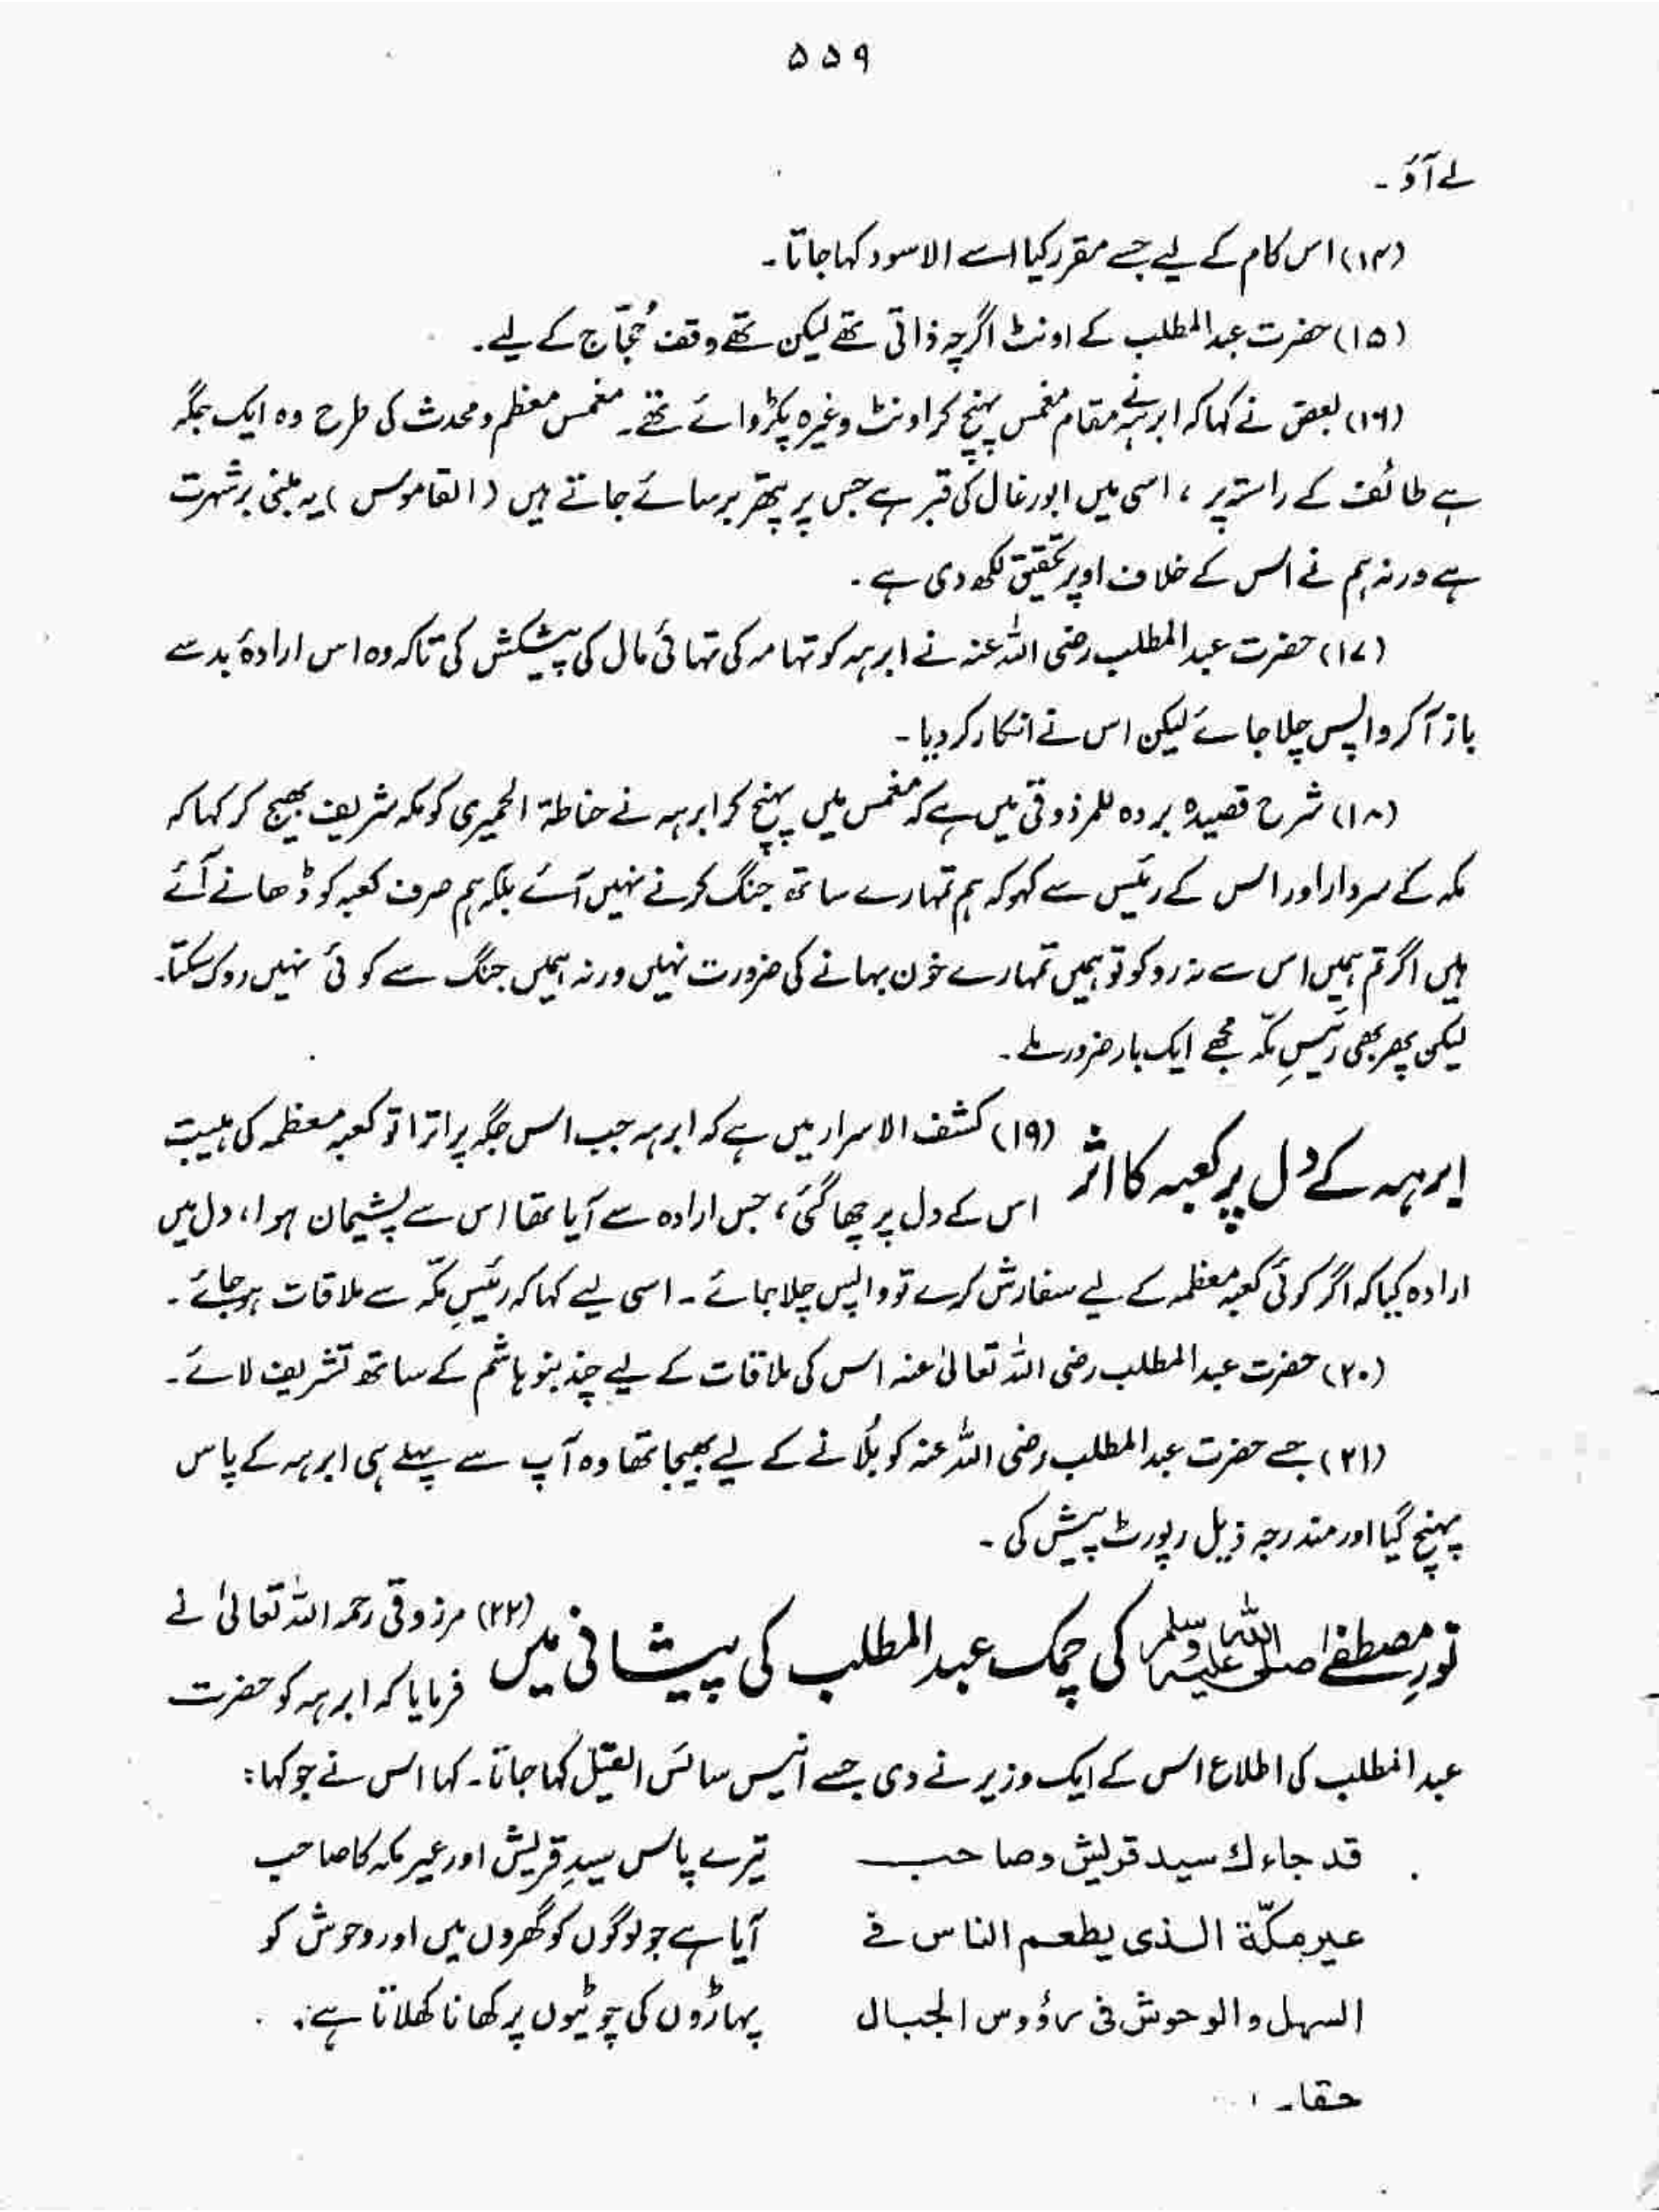 ۵۵۹
لے آؤ۔
(۱۴) اس کام کے لیے جسے مقرر کیا اسے الاسود کہا جاتا۔
(۱۵) حضرت عبدالمطلب کے اونٹ اگرچہ ذاتی تھے لیکن تھے وقف حُجّاج کے لیے۔
(۱۶) بعض نے کہا کہ ابرہہ نے مقام مغمس پہنچ کر اونٹ وغیرہ پکڑوائے تھے۔ مغمس معظم و محدث کی طرح وہ ایک جگہ
ہے طائف کے راستہ پر ، اسی میں ابورغال کی قبر ہے جس پر پتھر برسائے جاتے ہیں (القاموس) یہ مبنی بر شہرت
ہے ورنہ ہم نے اس کے خلاف اوپر تحقیق لکھ دی ہے ۔
(۱۷) حضرت عبدالمطلب رضی اللہ عنہ نے ابرہہ کو تہامہ کی تہائی مال کی پیشکش کی تاکہ وہ اس ارادۂ بد سے
باز آ کر واپس چلا جائے لیکن اس نے انکار کر دیا ۔
(۱۸) شرح قصیدہ بردہ للمرذوقی میں ہے کہ مغمس میں پہنچ کر ابرہہ نے حناطۃ الحمیری کو مکہ شریف بھیج کر کہا کہ
مکہ کے سردار اور اس کے رئیس سے کہو کہ ہم تمہارے ساتھ جنگ کرنے نہیں آئے بلکہ ہم صرف کعبہ کو ڈھانے آئے
ہیں اگر تم ہمیں اس سے نہ روکو تو ہمیں تمہارے خون بہانے کی ضرورت نہیں ورنہ ہمیں جنگ سے کوئی نہیں روک سکتا۔
لیکن پھر بھی رئیسِ مکّہ مجھے ایک بار ضرور ملے ۔
ابرہہ کے دل پر کعبہ کا اثر (۱۹) کشف الاسرار میں ہے کہ ابرہہ جب اس جگہ پر اترا تو کعبہ معظمہ کی ہیبت
اس کے دل پر چھا گئی ، جس ارادہ سے آیا تھا اس سے پشیمان ہوا ، دل میں
ارادہ کیا کہ اگر کوئی کعبہ معظمہ کے لیے سفارش کرے تو واپس چلا جائے ۔ اسی لیے کہا کہ رئیسِ مکّہ سے ملاقات ہو جائے ۔
(۲۰) حضرت عبدالمطلب رضی اللہ تعالیٰ عنہ اس کی ملاقات کے لیے چند بنو ہاشم کے ساتھ تشریف لائے ۔
(۲۱) جسے حضرت عبدالمطلب رضی اللہ عنہ کو بُلانے کے لیے بھیجا تھا وہ آپ سے پہلے ہی ابرہہ کے پاس
پہنچ گیا اور مندرجہ ذیل رپورٹ پیش کی ۔
نورِ مصطفےٰ صلی اللہ علیہ وسلم کی چمک عبدالمطلب کی پیشانی میں (۲۲) مرزوقی رحمہ اللہ تعالیٰ نے
فرمایا کہ ابرہہ کو حضرت
عبدالمطلب کی اطلاع اس کے ایک وزیر نے دی جسے انیس سائس الفیل کہا جاتا۔ کہا اس نے جو کہا :
قد جاءك سيد قريش وصاحب تیرے پاس سیدِ قریش اور عیر مکہ کا صاحب
عير مكّة الذى يطعم الناس فى آیا ہے جو لوگوں کو گھروں میں اور وحوش کو
السهل والوحوش فى رؤوس الجبال پہاڑوں کی چوٹیوں پر کھانا کھلاتا ہے :
حقا۔